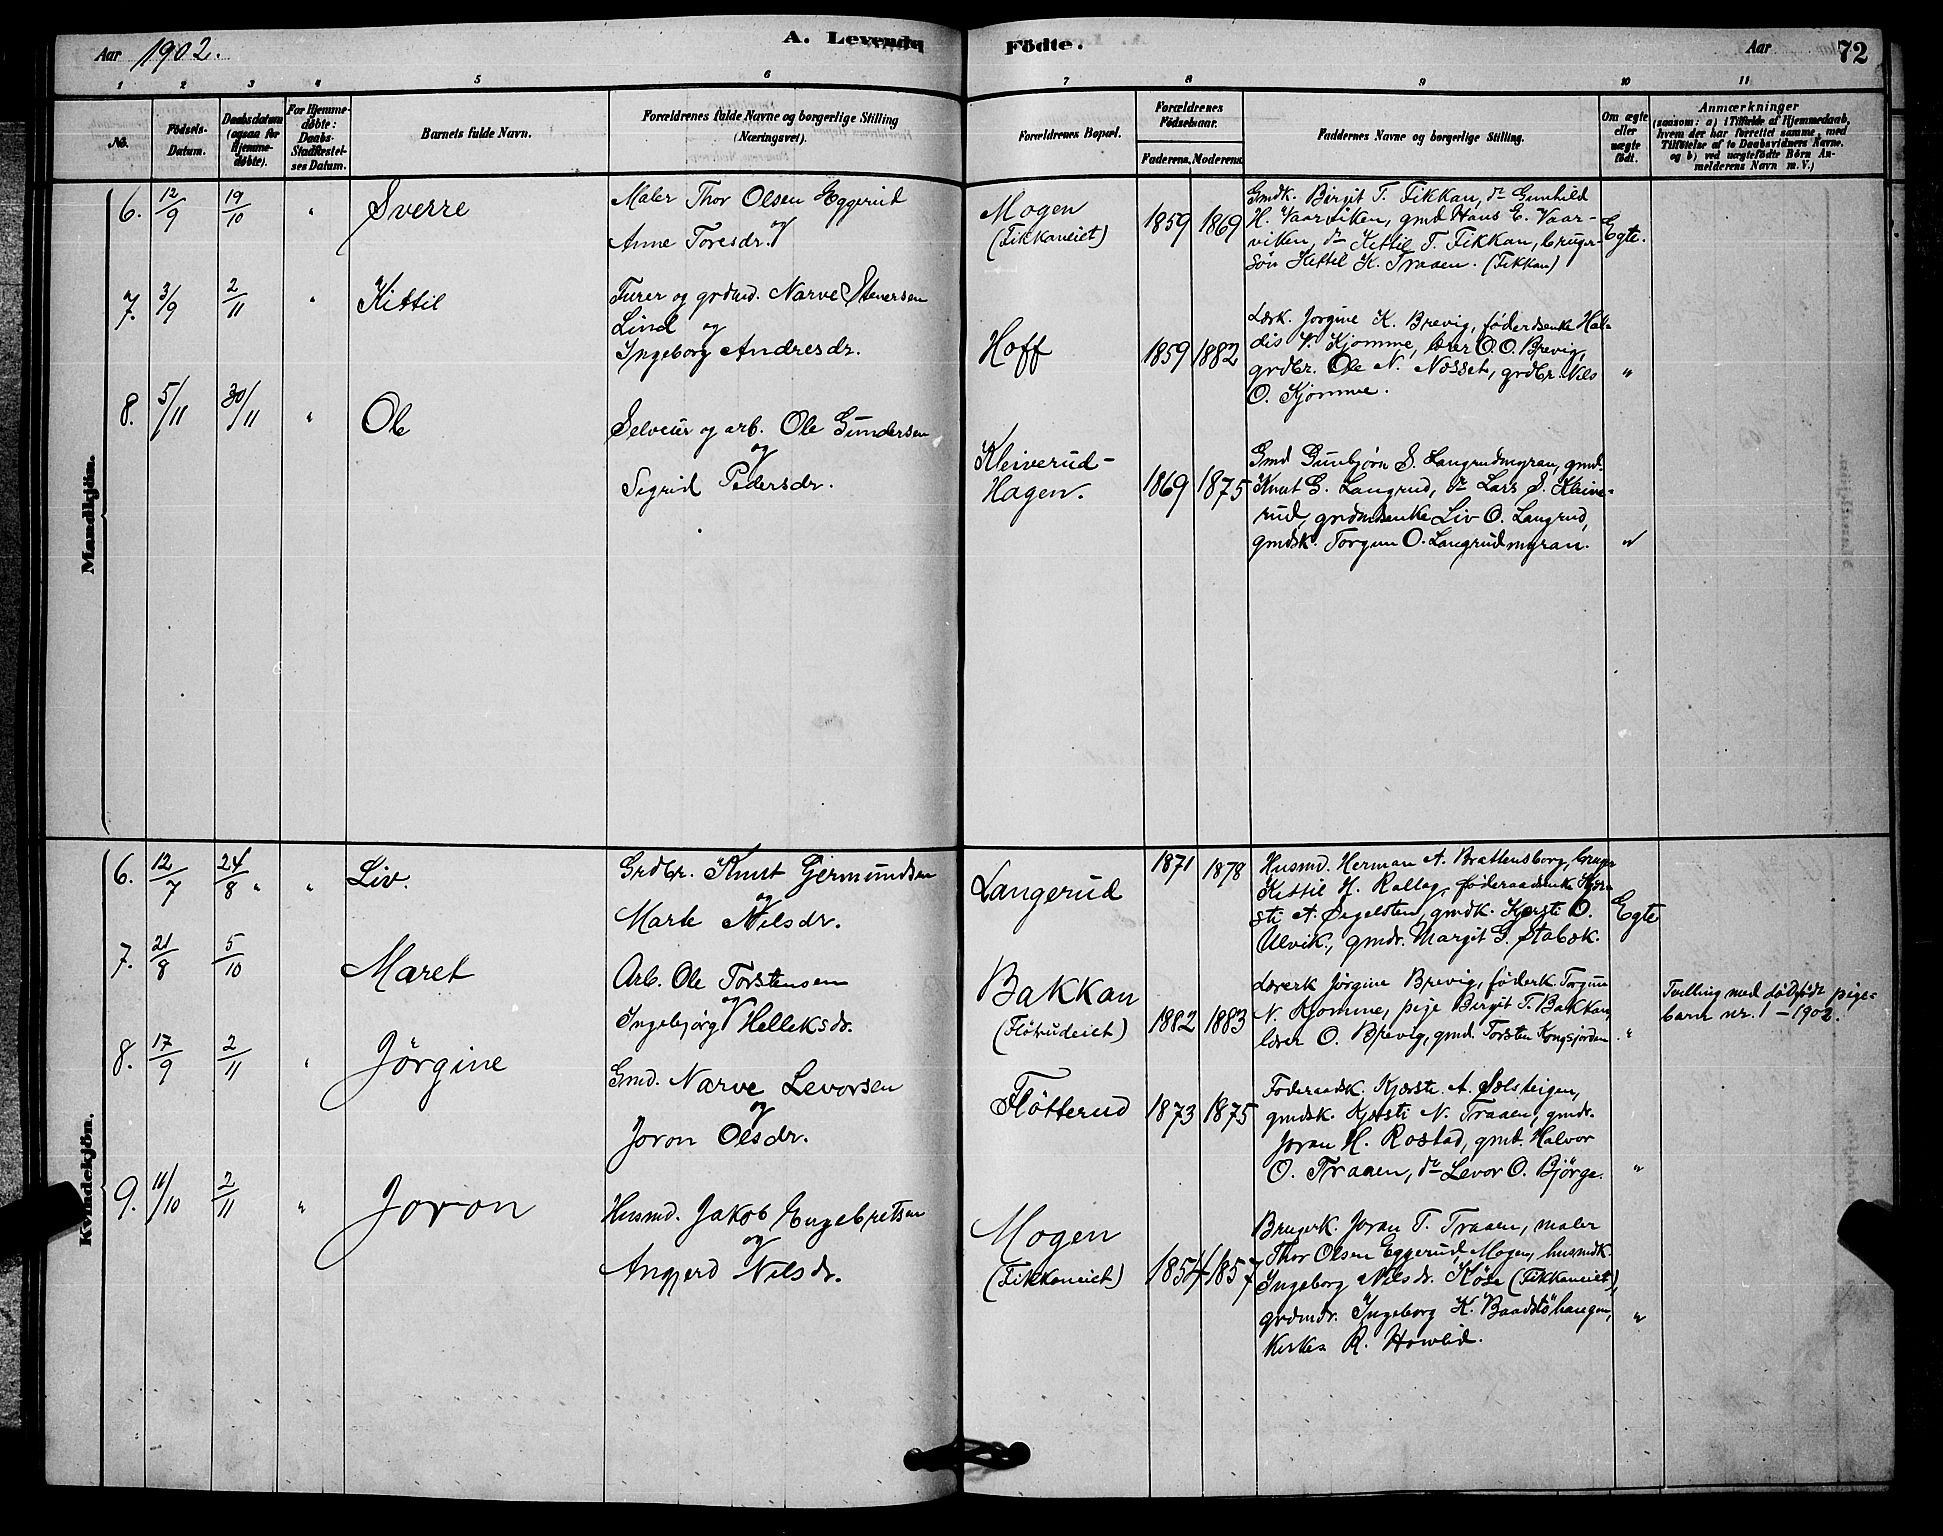 Aar 1902. A. Levende Födte. Aar 72
1 2 3 4 5 6 7 8 9 10 11
No. Födsels-Datum. Daabsdatum (ogsaa for Hjemme-döbte). For Hjemme-döbte: Daabs-Stadfæstel-ses Datum. Barnets fulde Navn. Forældrenes fulde Navne og borgerlige Stilling (Næringsvei). Forældrenes Bopæl. Forældrenes Födselsaar. Faderens. Moderens. Faddernes Navne og borgerlige Stilling. Om ægte eller uægte födt. Anmærkninger (saasom: a) i Tilfælde af Hjemmedaab, hvem der har forrettet samme, med Tilföielse af to Daabsvidners Navne. og b) ved uægtefödte Börn An-melderens Navn m. V.)
Mandkjön.
6. 12/9 19/10 " Sverre
Maler Thor Olsen Eggerud
og
Anne Toresdr.
Mogen
(Fikkaneiet)
1859 1869
Gmdk. Birgit T. Fikkan, do Gunhild
H. Vaarviken, gmd Hans E. Vaar-
viken, do Kittil T. Fikkan, bruger-
sön Kittil K. Traaen. (Fikkan)
Egte.
7. 3/9 2/11 " Kittil
Furer og grdmd. Narve Stenersen
Lind og
Ingeborg Andresdr.
Hoff
1859 1882
Lærk. Jorgine K. Brevig, föderdsenke Hal-
dis P. Kjomme, lærer O. O. Brevig,
grdbr. Ole N. Nösset, grdbr. Nils
O. Kjomme.
"
8. 5/11 30/11 " Ole
Selveier og arb. Ole Gundersen
og
Sigrid Pedersdr.
Kleiverud-
Hagen.
1869 1875
Gmd Gunbjörn S. Langrudmyran, gmd.
Knut G. Langrud, do Lars S. Kleive-
rud, grdmdsenke Liv O. Langrud,
gmdsk. Torgun O. Langrudmyran.
"
Kvindekjön.
6. 12/7 24/8 " " Liv.
Grdbr. Knut Germundsen
og
Marte Nilsdr.
Langerud
1871 1878
Husmd. Herman A. Brattensborg, bruger
Kittil H. Rollag, föderaadsenke Kjer-
sti A. Öygelsten, gmdk. Kjersti O.
Ulvik., gmdr. Margit G. Stabæk.
Egte
7. 21/8 5/10 Maret
Arb. Ole Torstensen
og
Ingebjörg Helleksdr.
Bakkan
(Flötrudeiet)
1882 1883
Lærerk Jörgine Brevig, föderk. Torgune
N. Kjomme, pige Birgit T. Bakkan,
lærer O. Brevig, gmd. Torsten Kongsjorden.
"
Tvilling med dödfödt pige-
barn nr. 1 - 1902.
8. 17/9 2/11 " Jörgine
Gmd. Narve Levorsen
og
Joron Olsdr.
Flötterud
1873 1875
Foderaadsk. Kjersti A. Solsteigen,
gmdsk. Kjersti N. Traaen, gmdr.
Joran H. Rostad, gmd. Halvor
O. Traaen, do Levor O. Björge.
"
9. 11/10 2/11 " Joron
Husmd. Jakob Engebretsen
og
Angjerd Nilsdr.
Mogen
(Fikkaneiet)
1854 1857
Brugerk. Joran T. Traaen, maler
Thor Olsen Eggerud, Mogen, husmdk.
Ingeborg Nilsdr. Köse (Fikkaneiet),
grdmdr. Ingeborg K. Baadstöhaugen,
R.
"